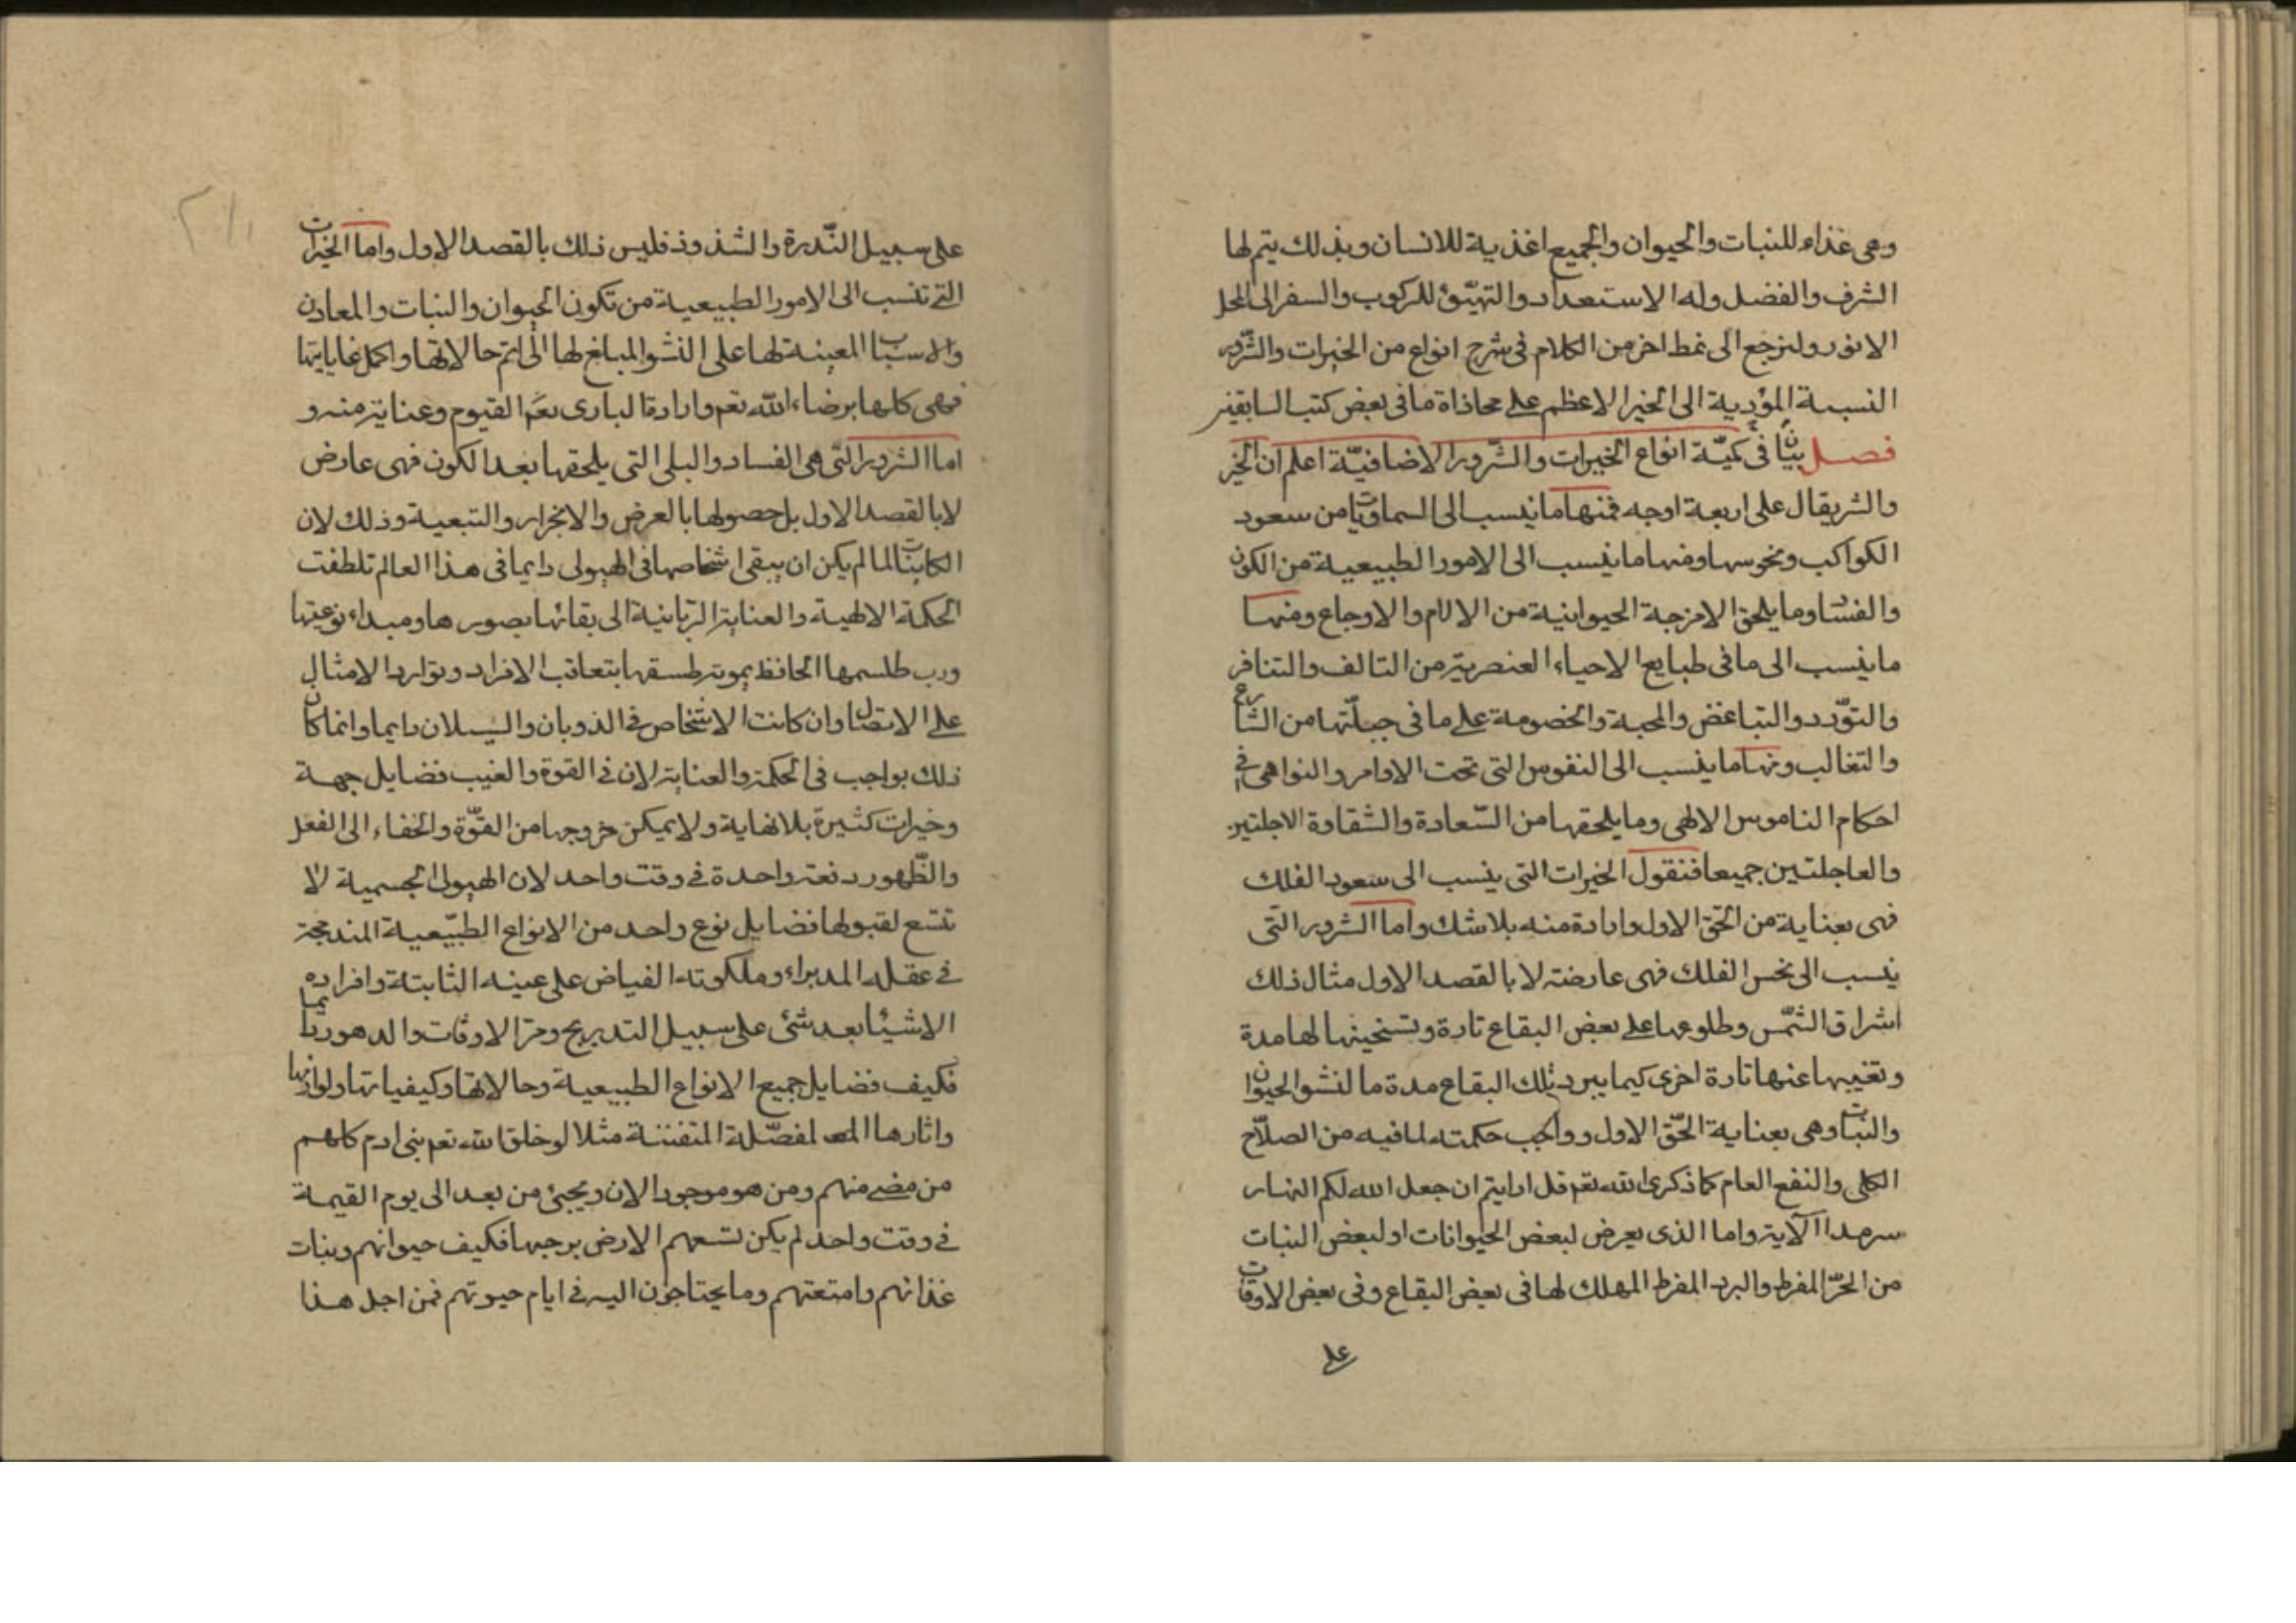 وهى غذاء للنبات والحيوان والجميع اغذية للانسان وبذلك يتم لها
الشرف والفضل وله الاستعداد والتهيّؤ للركوب والسفر الى المحل
الانور ولنرجع الى نمط اخر من الكلام فى شرح انواع من الخيرات والشرور
النسبية المؤدية الى الخير الاعظم على محاذاة ما فى بعض كتب السابقين
فصل بيان فى كميّة انواع الخيرات والشّرور الاضافيّة اعلم ان الخير
والشر يقال على اربعة اوجه فمنها ما ينسب الى السماويات من سعود
الكواكب ونحوسها ومنها ما ينسب الى الامور الطبيعية من الكون
والفساد وما يلحق الامزجة الحيوانية من الالام والاوجاع ومنها
ما ينسب الى ما فى طبايع الاحياء العنصرية من التالف والتنافر
والتوّدد والتباغض والمحبة والخصومة على ما فى جبلّتها من التنازع
والتغالب ومنها ما ينسب الى النفوس التى تحت الاوامر والنواهى فى
احكام الناموس الالهى وما يلحقها من السّعادة والشقاوة الاجلتين
والعاجلتين جميعا فنقول الخيرات التى ينسب الى سعود الفلك
فهى بعناية من الحق الاول وارادة منه بلا شك واما الشرور التى
ينسب الى نحس الفلك فهى عارضة لا بالقصد الاول مثال ذلك
اشراق الشمّس وطلوعها على بعض البقاع تارة وتسخينها لها مدة
وتغيبها عنها تارة اخرى كيما يبرد تلك البقاع مدة ما لنشو الحيوان
والنبات وهى بعناية الحّق الاول وواجب حكمته لما فيه من الصلاّح
الكلى والنفع العام كما ذكرى الله تعم قل ارايتم ان جعل الله لكم النهار
سرمدا الآية واما الذى يعرض لبعض الحيوانات او لبعض النبات
من الحرّ المفرط والبرد المفرط المهلك لها فى بعض البقاع وفى بعض الاوقات
على
على سبيل النّدرة والشذوذ فليس ذلك بالقصد الاول واما الخيرات
التى تنسب الى الامور الطبيعية من تكون الحيوان والنبات والمعادن
والاسباب المعينة لها على النشو المبلغ لها الى اتم حالاتها واكمل غاياتها
فهى كلها برضاء الله تعم وارادة البارى نعم القيوم وعناية منه و
اما الشرور التى هى الفساد والبلى التى يلحقها بعد الكون فهى عارض
لا بالقصد الاول بل حصولها بالعرض والانجرار والتبعية وذلك لان
الكاينات لما لم يكن ان يبقى اشخاصها فى الهيولى دايما فى هذا العالم تلطفت
الحكمة الالهية والعناية الربانية الى بقائها بصورها ومبداء نوعيتها
ورب طلسمها الحافظ بتعاقب الافراد وتوارد الامثال
على الاتصال وان كانت الاشخاص فى الذوبان والسيلان دايما وانما كان
ذلك بواجب فى الحكمة والعناية لان فى القوة والغيب فضايل جهة
وخيرات كثيرة بلا نهاية ولا يمكن خروجها من القوّة والخفاء الى الفعل
والظّهور دفعة واحدة فى وقت واحد لان الهيولى الجسمية لا
تتسع لقبولها فضايل نوع واحد من الانواع الطبّيعية المندمجة
فى عقله المدبر له وملكوته الفياض على عينه الثابتة وافراده
الا شيئا بعد شئ على سبيل التدريج ومرّ الاوقات والدهور دايما
فكيف فضايل جميع الانواع الطبيعية وحالاتها وكيفياتها ولوازمها
واثارها المفصّلة المتفننة مثلا لو خلق الله تعم بنى ادم كلهم
من مضى منهم ومن هو موجود الان ويجئ من بعد الى يوم القيمة
فى وقت واحد لم يكن تسعهم الارض برحبها فكيف حيوانهم ونبات
غذائهم وامتعتهم وما يحتاجون اليه فى ايام حيوتهم فمن اجل هذا